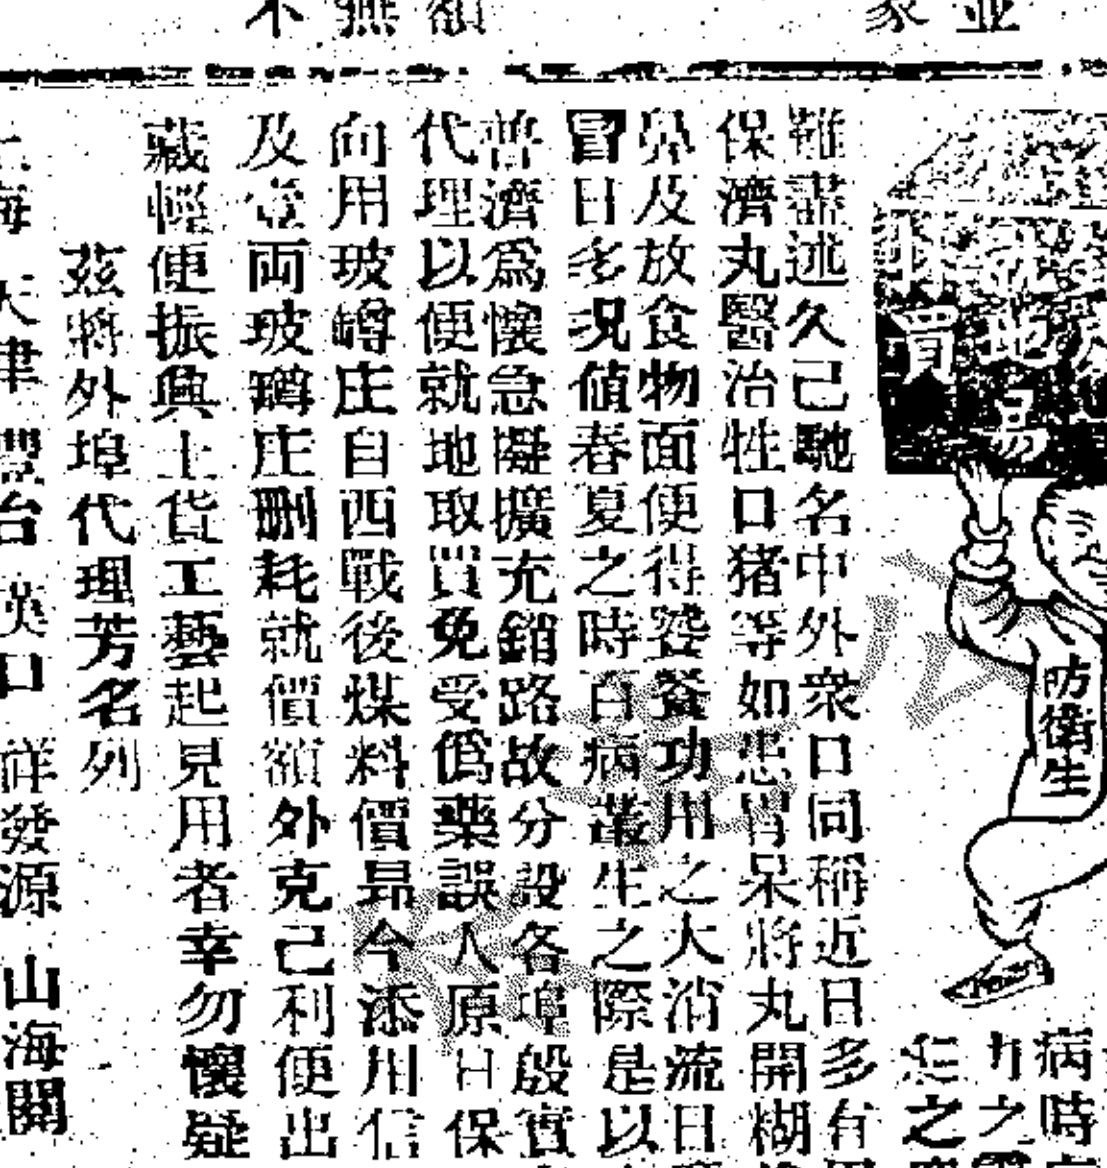 病時
力之
之
防衛生
就地
買
易
雖盡述久己馳名中外衆口同稱近日多有
保濟丸醫治牲口猪等如患胃呆將丸開糊
鼻及放食物面便得發餐功用之大消流日
冒日多况值春夏之時百病叢生之際是以
普濟爲懷急擬擴充銷路故分設各埠殷實
代理以便就地取買免受僞藥誤人原日保
向用玻罇庄自西戰後煤料價昂今添用信
及壹両玻罇庄刪耗就價額外克己利便出
藏輕便振興土貨工藝起見用者幸勿懷疑
茲將外埠代理芳名列
上海 天津 豐台 漢口 祥發源 山海關